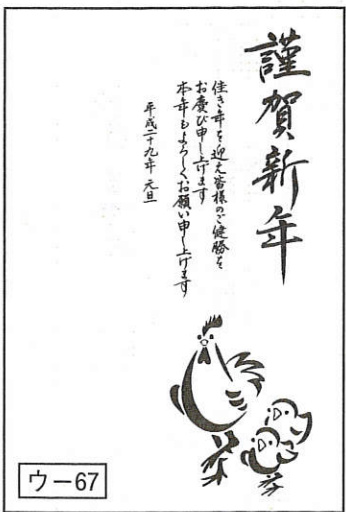 謹賀新年
佳き年を迎え皆様のご健勝を
お慶び申し上げます
本年もよろしくお願い申し上げます
平成二十九年 元旦
ウー67